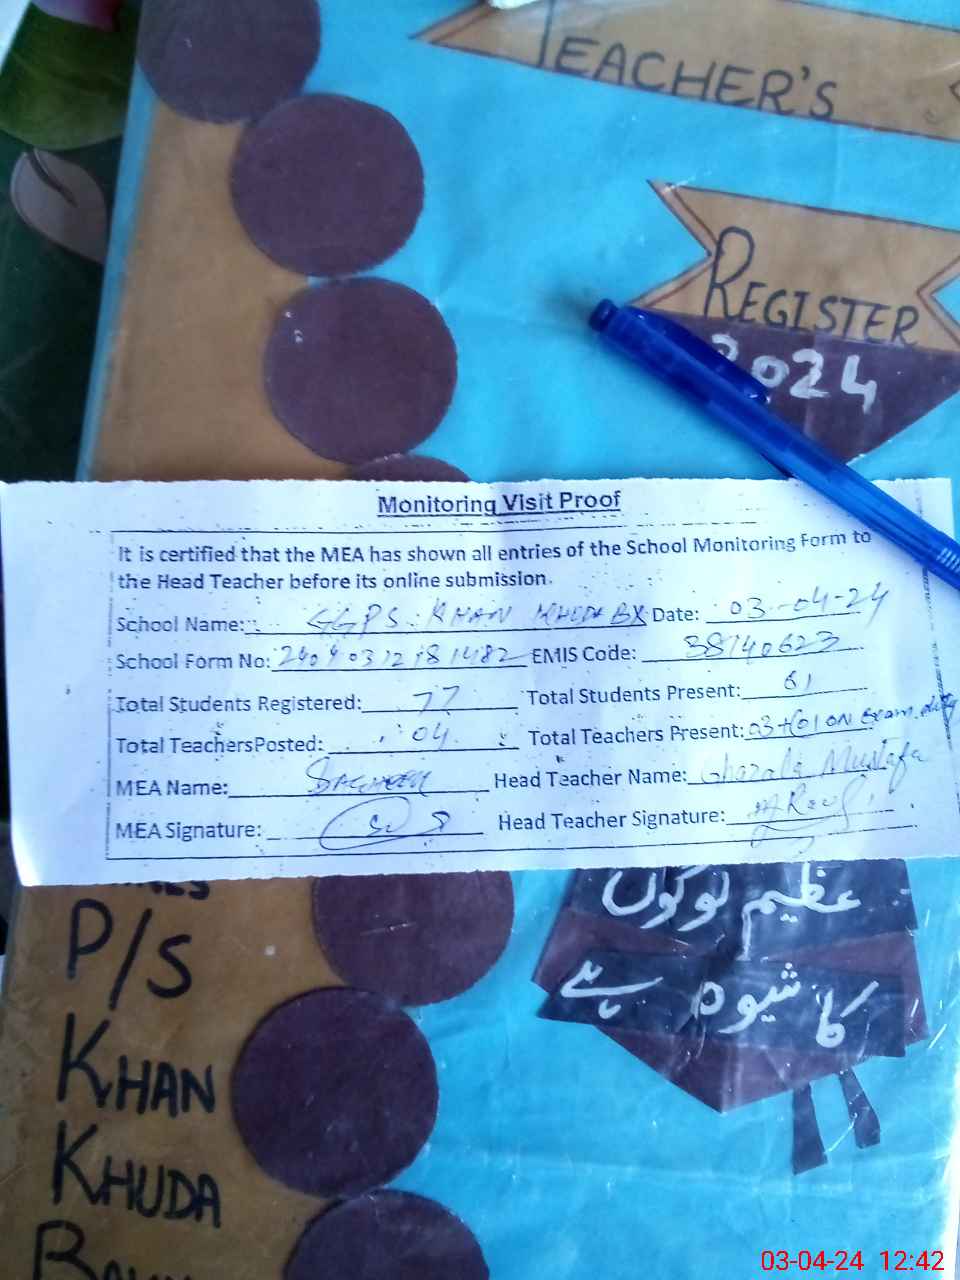 TEACHER'S
REGISTER
2024
Monitoring Visit Proof
It is certified that the MEA has shown all entries of the School Monitoring Form to
the Head Teacher before its online submission.
School Name: GGPS KHAN KHUDA BX Date: 03-04-24
School Form No: EMIS Code: 38140623
Total Students Registered: 77 Total Students Present: 61
Total TeachersPosted: 04 Total Teachers Present: 03+01 ON Exam. duty
MEA Name: Head Teacher Name: Ghazala Mustafa
MEA Signature: Head Teacher Signature:
P/S
KHAN
KHUDA
عظیم لوگوں
کا شیوہ ہے
03-04-24 12:42